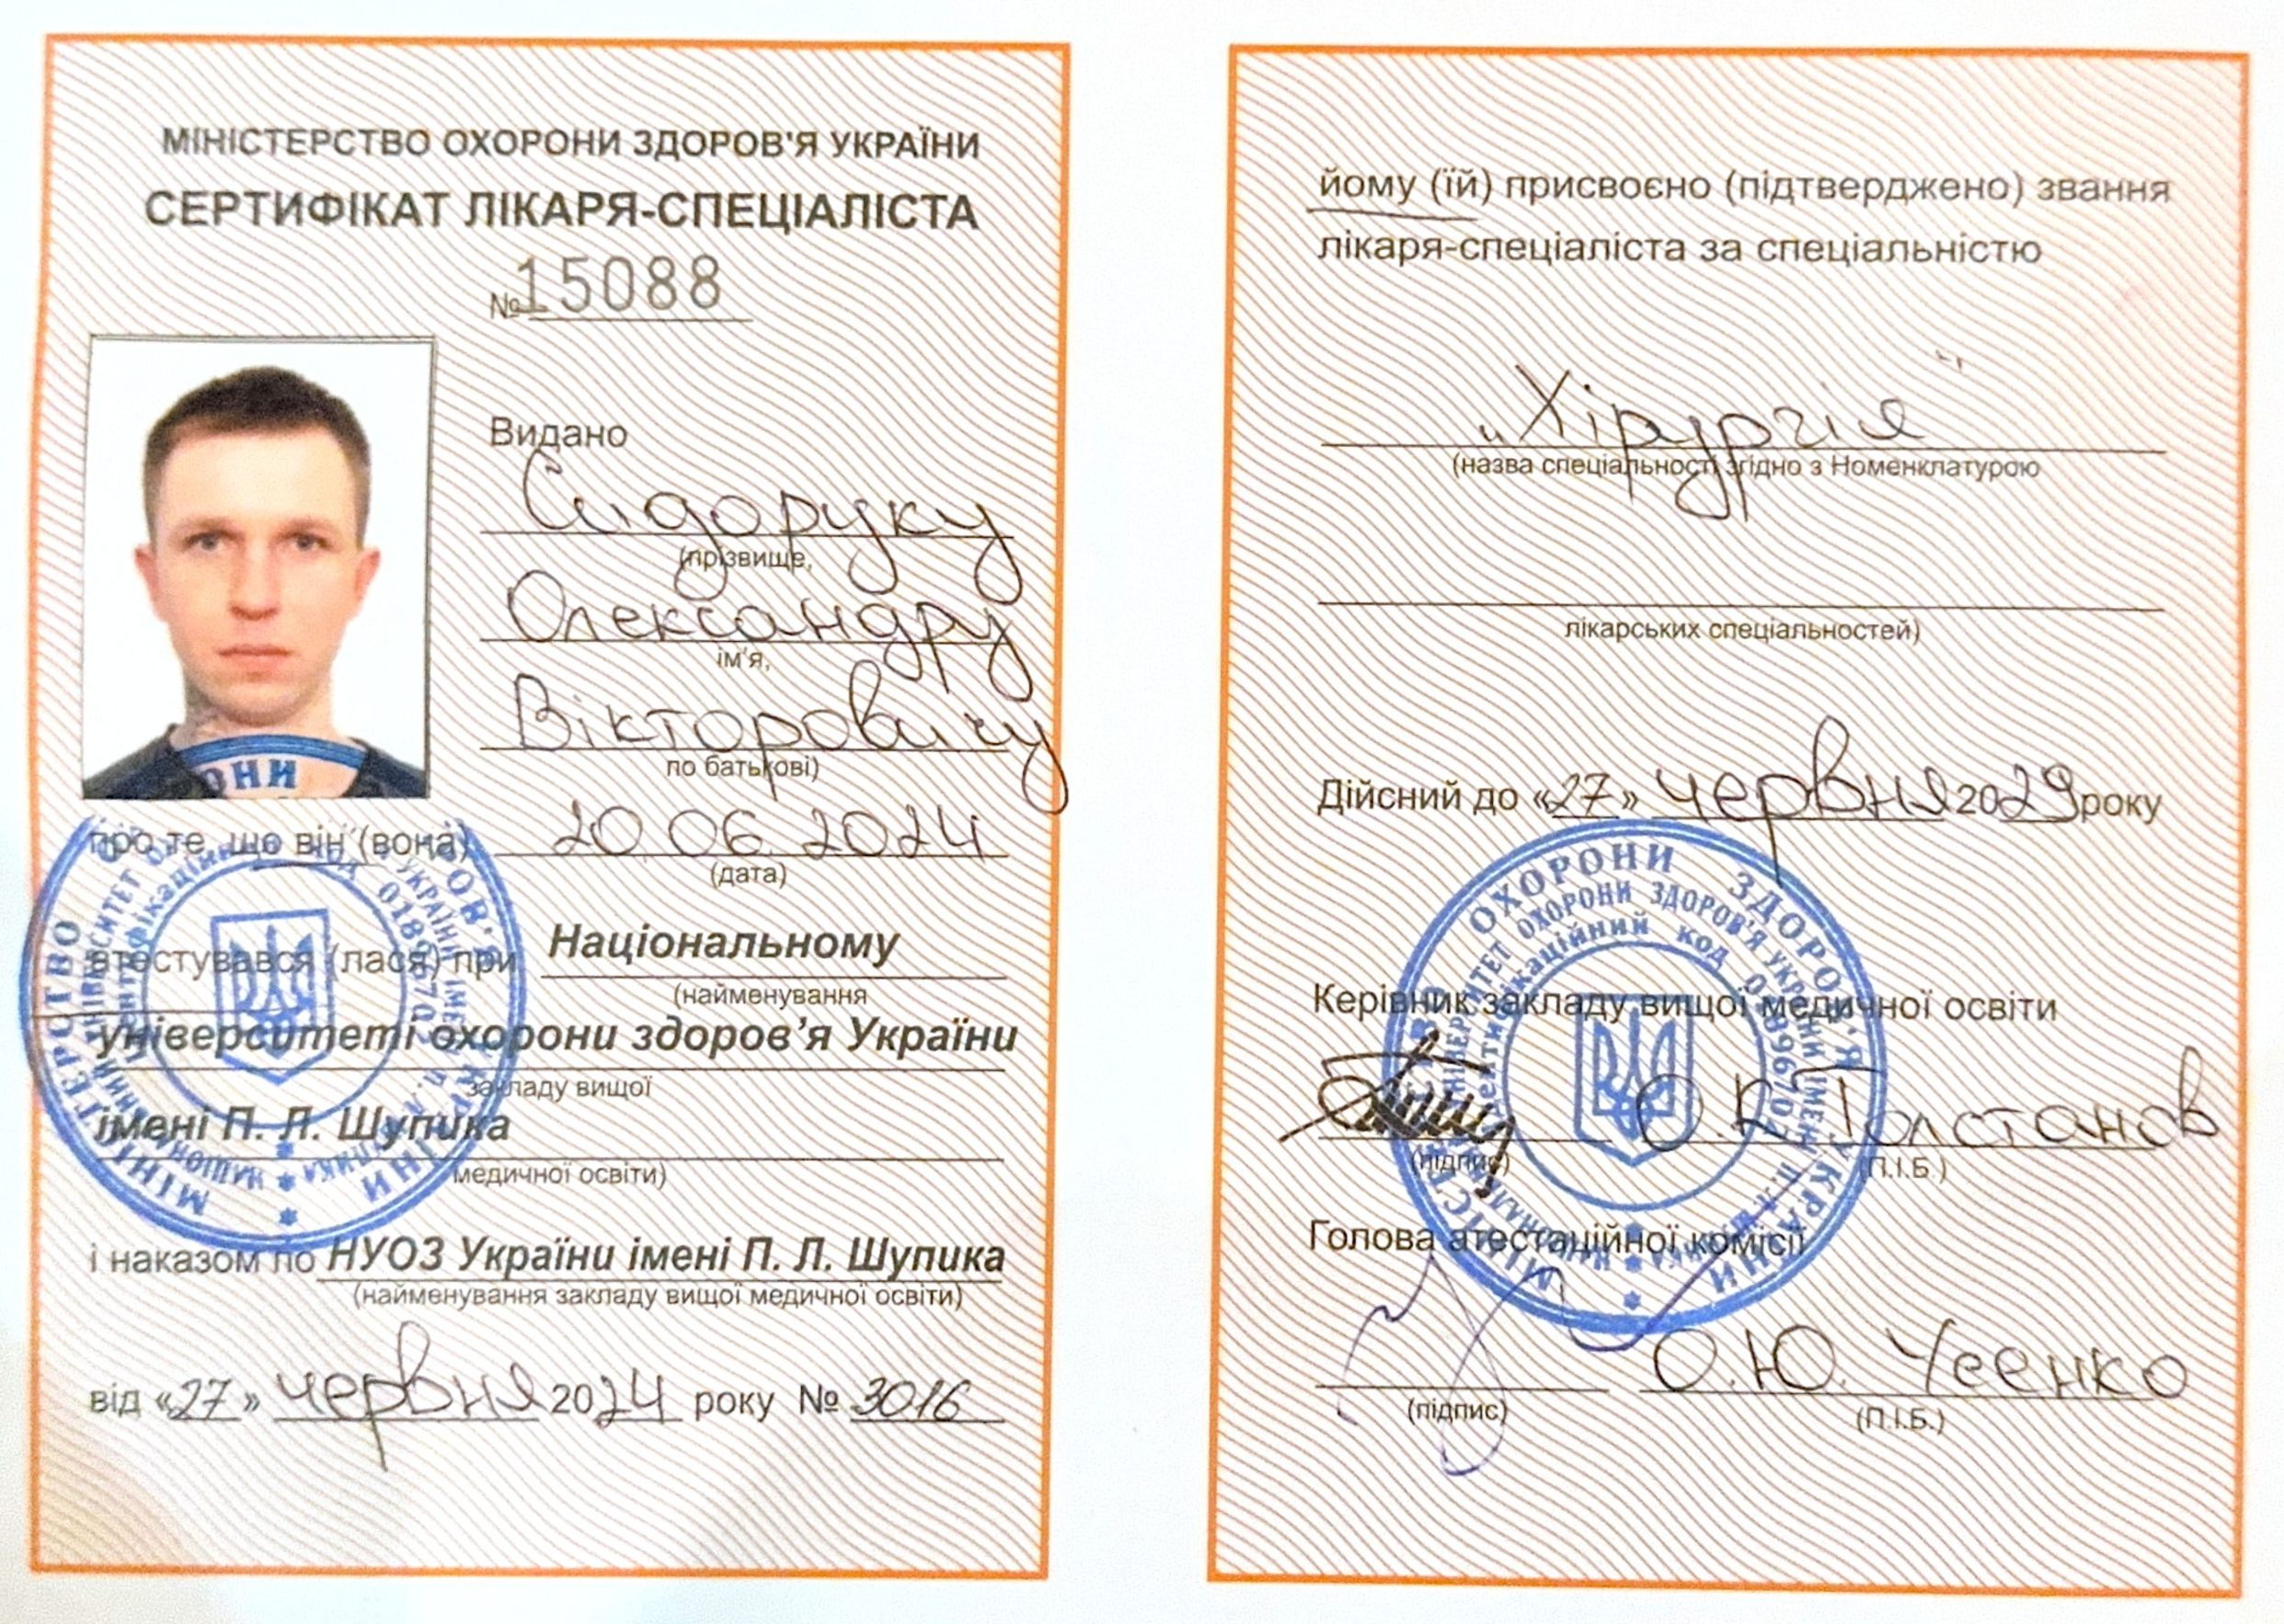 МІНІСТЕРСТВО ОХОРОНИ ЗДОРОВ'Я УКРАЇНИ
СЕРТИФІКАТ ЛІКАРЯ-СПЕЦІАЛІСТА
№15088
Видано
Сидоруку
(прізвище,
Олександру
ім'я,
Вікторовичу
по батькові)
про те, що він (вона) 20.06.2024
(дата)
атестувався (лася) при Національному
(найменування
університеті охорони здоров’я України
закладу вищої
імені П. Л. Шупика
медичної освіти)
і наказом по НУОЗ України імені П. Л. Шупика
(найменування закладу вищої медичної освіти)
від «27» червня 2024 року № 3016
йому (їй) присвоєно (підтверджено) звання
лікаря-спеціаліста за спеціальністю
„Хірургія"
(назва спеціальності згідно з Номенклатурою
лікарських спеціальностей)
Дійсний до «27» червня 2029 року
Керівник закладу вищої медичної освіти
О.К. Толстанов
(підпис) (П.І.Б.)
Голова атестаційної комісії
О.Ю. Усенко
(підпис) (П.І.Б.)
МІНІСТЕРСТВО ОХОРОНИ ЗДОРОВ'Я УКРАЇНИ
НАЦІОНАЛЬНИЙ УНІВЕРСИТЕТ ОХОРОНИ ЗДОРОВ'Я УКРАЇНИ ІМЕНІ П.Л. ШУПИКА
Ідентифікаційний код 01896702